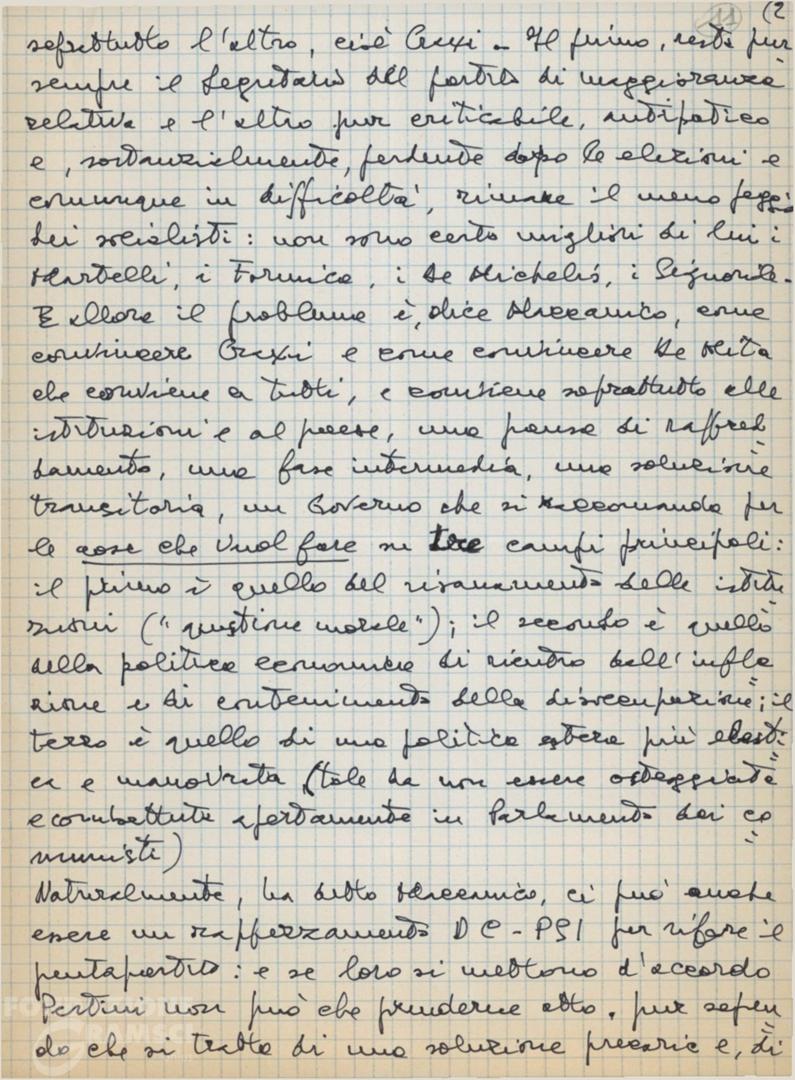 11 (2
soprattutto l'altro, cioè Craxi. Il primo, resta pur
sempre il Segretario del partito di maggioranza
relativa e l'altro pur criticabile, antipatico
e, sostanzialmente, perdente dopo le elezioni e
comunque in difficoltà, rimane il meno peggio
dei socialisti: non sono certo migliori di lui i
Martelli, i Formica, i De Michelis, i Signorile.
E allora il problema è, dice Maccanico, come
convincere Craxi e come convincere De Mita
che conviene a tutti, e conviene soprattutto alle
istituzioni e al paese, una pausa di raffred=
damento, una fase intermedia, una soluzione
transitoria, un Governo che si raccomanda per
le cose che vuol fare su tre campi principali:
il primo è quello del risanamento delle istitu
zioni ("questione morale"); il secondo è quello
della politica economica di rientro dall'infla
zione e di contenimento della disoccupazione; il
terzo è quello di una politica estera più elasti=
ca e manovrata (tale da non essere osteggiata
e combattuta apertamente in Parlamento dai co=
munisti)
Naturalmente, ha detto Maccanico, ci può anche
essere un rafferzamento DC-PSI per rifare il
pentapartito: e se loro si mettono d'accordo
Pertini non può che prenderne atto, pur sapen=
do che si tratta di una soluzione precaria e, di
FONDAZIONE
GRAMSCI